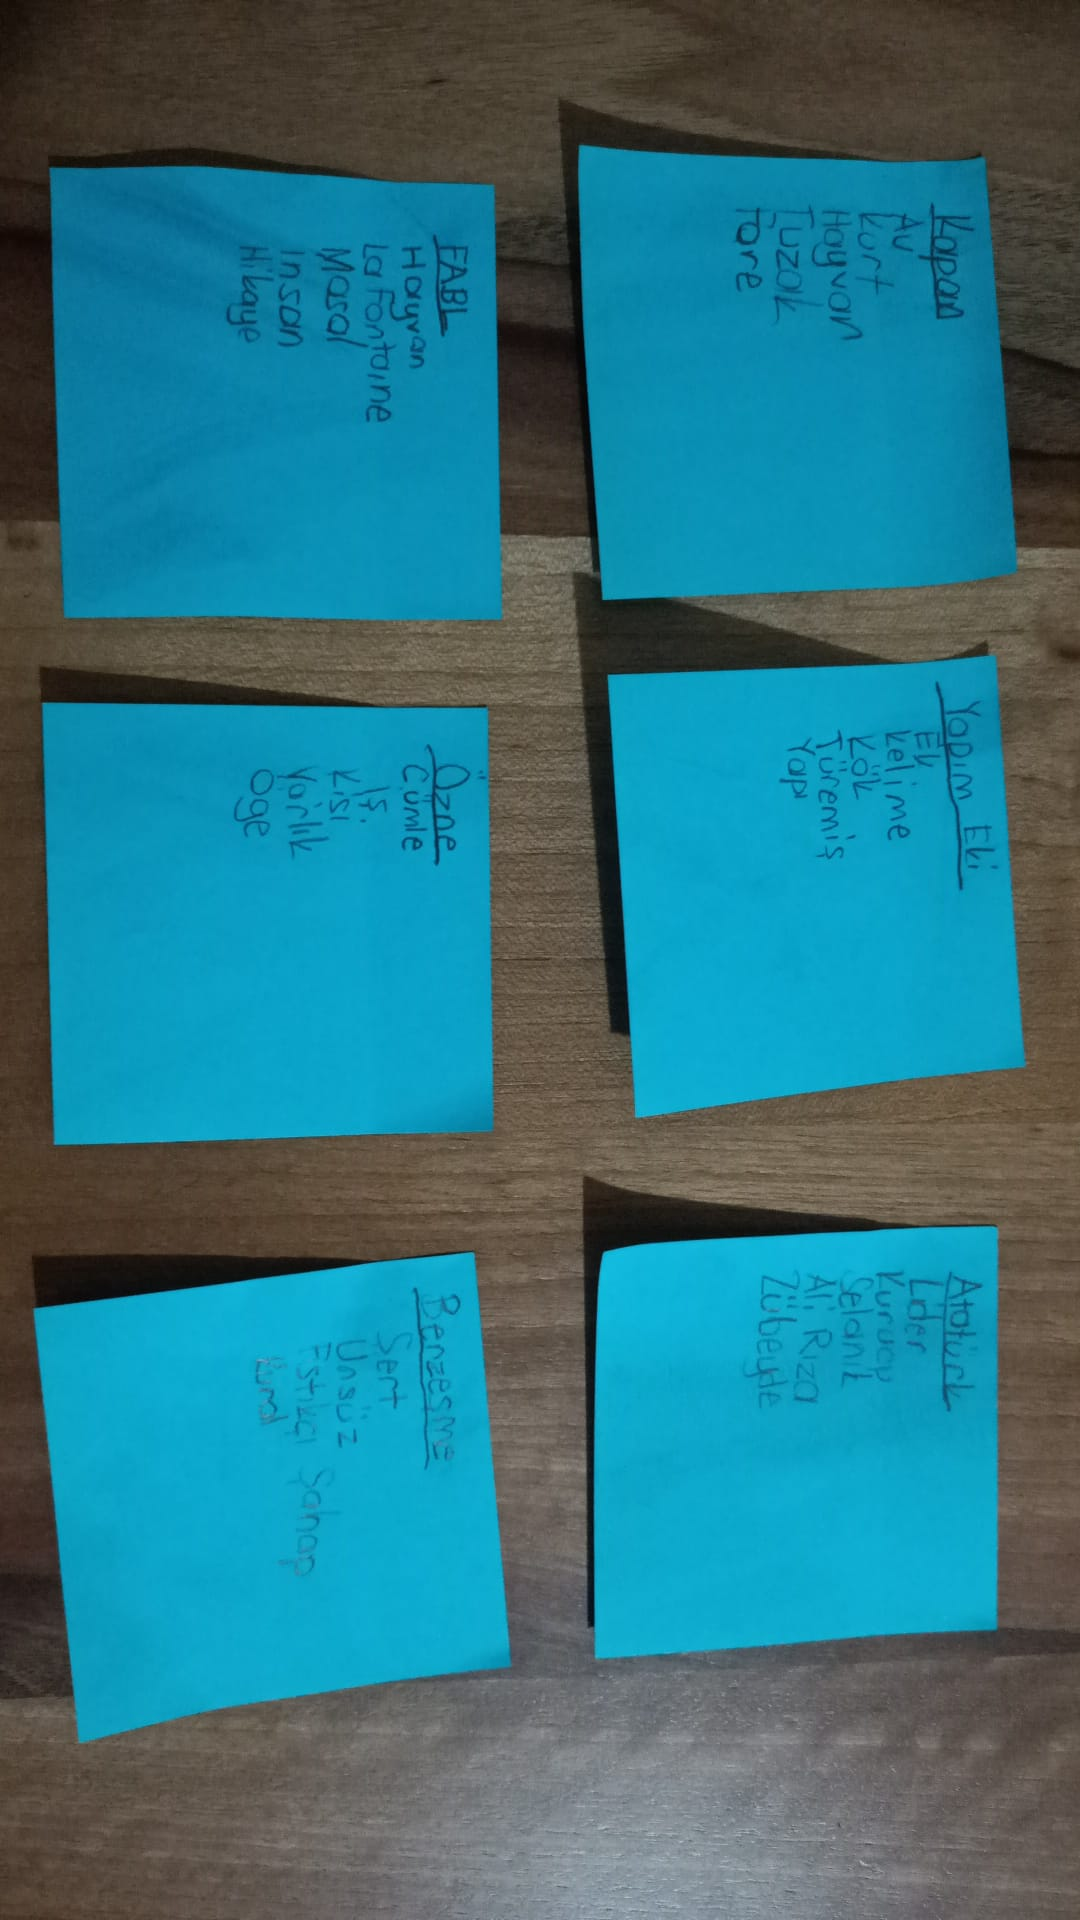 Kapan
Av
Kurt
Hayvan
Tuzak
Fare
Yapım Eki
Ek
Kelime
Kök
Türemiş
Yapı
Atatürk
Lider
Kurucu
Selanik
Ali Rıza
Zübeyde
FABL
Hayvan
La Fontaine
Masal
İnsan
Hikaye
Özne
Cümle
İş
Kişi
Varlık
Öge
Benzeşme
Sert
Ünsüz
Fıstıkçı Şahap
Kural